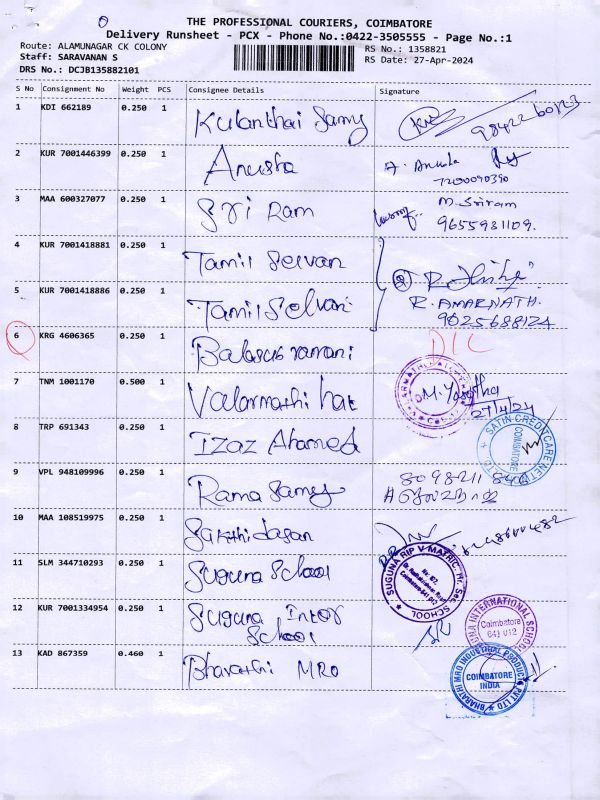 THE PROFESSIONAL COURIERS, COIMBATORE
Delivery Runsheet - PCX - Phone No.:0422-3505555 - Page No.:1
Route: ALAMUNAGAR CK COLONY
RS No.: 1358821
Staff: SARAVANAN S
RS Date: 27-Apr-2024
DRS No.: DCJB135882101
S No Consignment No Weight PCS Consignee Details Signature
1 KDI 662189 0.250 1 Kulanthai Samy 98422 60123
2 KUR 7001446399 0.250 1 Anusha A. Anusha
7200090390
3 MAA 600327077 0.250 1 Sri Ram M. Sriram
9655981109.
4 KUR 7001418881 0.250 1 Tamil Selvan
5 KUR 7001418886 0.250 1 Tamil Selvan R. AMARNATH.
9025688124
6 KRG 4606365 0.250 1 Balasubramani D/C
7 TNM 1001170 0.500 1 Valarmathi
27/4/24
8 TRP 691343 0.250 1 Izaz Ahamed
SATIN CREDITCARE NET
COIMBATORE
9 VPL 948109996 0.250 1 Rama Samy
10 MAA 108519975 0.250 1 Sakthidasan
11 SLM 344710293 0.250 1 Suguna School
SUGUNA RIP V MATRIC. HR. SEC SCHOOL
Coimbatore-641 012
12 KUR 7001334954 0.250 1 Suguna Inter
School
INTERNATIONAL SCHOOL
Coimbatore
641 012
13 KAD 867359 0.460 1 Bharathi MRO
BHARATHI MRO INDUSTRIAL PRODUCTS PVT LTD
COIMBATORE
INDIA